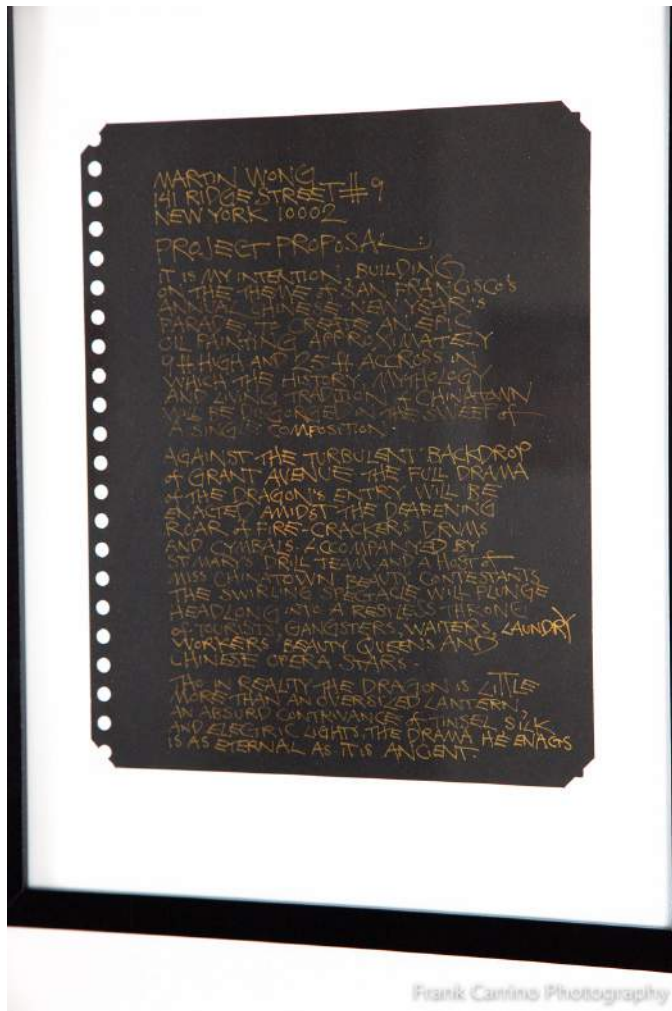 MARTIN WONG
141 RIDGE STREET # 9
NEW YORK 10002
PROJECT PROPOSAL :
IT IS MY INTENTION BUILDING
ON THE THEME of SAN FRANCISCO'S
ANNUAL CHINESE NEW YEAR'S
PARADE, TO CREATE AN EPIC
OIL PAINTING APPROXIMATELY
9 ft HIGH AND 25 ft ACCROSS IN
WHICH THE HISTORY, MYTHOLOGY
AND LIVING TRADITION of CHINATOWN
WILL BE DISGORGED IN THE SWEEP of
A SINGLE COMPOSITION.
AGAINST THE TURBULENT BACKDROP
of GRANT AVENUE THE FULL DRAMA
of THE DRAGON'S ENTRY WILL BE
ENACTED AMIDST THE DEAFENING
ROAR of FIRE-CRACKERS DRUMS
AND CYMBALS. ACCOMPANYED BY
ST. MARY'S DRILL TEAM AND A HOST of
MISS CHINATOWN BEAUTY CONTESTANTS
THE SWIRLING SPECTACLE WILL PLUNGE
HEADLONG INTO A RESTLESS THRONG
of TOURISTS, GANGSTERS, WAITERS, LAUNDRY
WORKERS, BEAUTY QUEENS AND
CHINESE OPERA STARS.
THO IN REALITY THE DRAGON IS LITTLE
MORE THAN AN OVERSIZED LANTERN,
AN ABSURD CONTRIVANCE of TINSEL, SILK
AND ELECTRIC LIGHTS, THE DRAMA HE ENACTS
IS AS ETERNAL AS IT IS ANCIENT.
Frank Carrino Photography